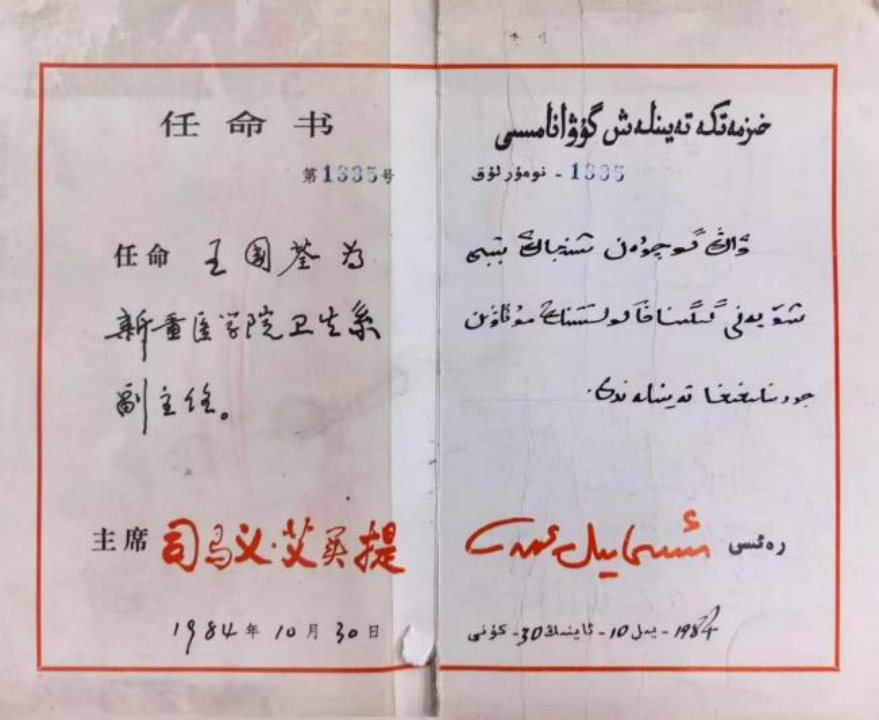 任命书
第1335号
任命 王国荃为
新疆医学院卫生系
副主任。
主席 司马义·艾买提
1984年10月30日
خىزمەتكە تەيىنلەش گۇۋانامىسى
1335 - نومۇرلۇق
ۋاڭ گوچۈەن شىنجاڭ تىببىي
شۆيۈەنى گىگىيېنا فاكولتېتىنىڭ مۇئاۋىن
مۇدىرلىقىغا تەيىنلەندى.
رەئىس ئىسمايىل ئەمەت
1984 - يىل 10 - ئاينىڭ 30 - كۈنى